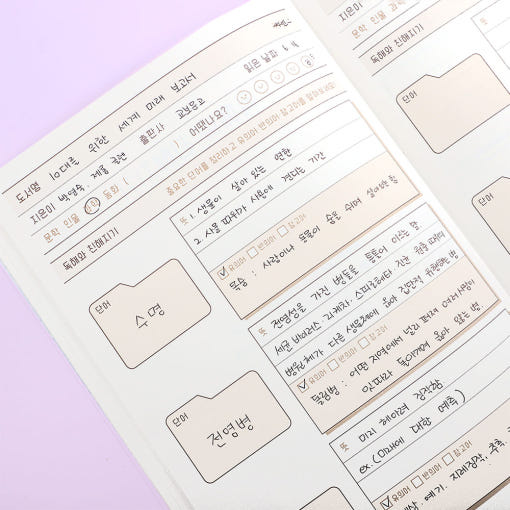 도서명 10대를 위한 세계 미래 보고서 읽은 날짜
지은이 박영숙, 제롬 글렌 출판사 교보문고
문학 인물 과학 동화 ( ) 어땠나요?
독해와 친해지기
중요한 단어를 정리하고 유의어, 반의어, 참고어를 찾아보세요!
단어
수명
뜻 1. 생물이 살아 있는 연한
2. 사물 따위가 사용에 견디는 기간
유의어 반의어 참고어
목숨 : 사람이나 동물이 숨을 쉬며 살아있는 힘
단어
전염병
뜻 전염성을 가진 병들을 통틀어 이르는 말
세균, 바이러스, 리케차, 스피로헤타, 진균, 원충 따위의
병원체가 다른 생물체에 옮아 집단적 유행하는 병
유의어 반의어 참고어
돌림병 : 어떤 지역에서 널리 퍼져 여러 사람이
잇따라 돌아가며 옮아 앓는 병
뜻 미리 헤아려 짐작함
ex. (미래에 대한 예측)
유의어 반의어 참고어
예상, 예기, 지레짐작, 추측
지은이
문학 인물 과학
독해와 친해지기
단어
단어